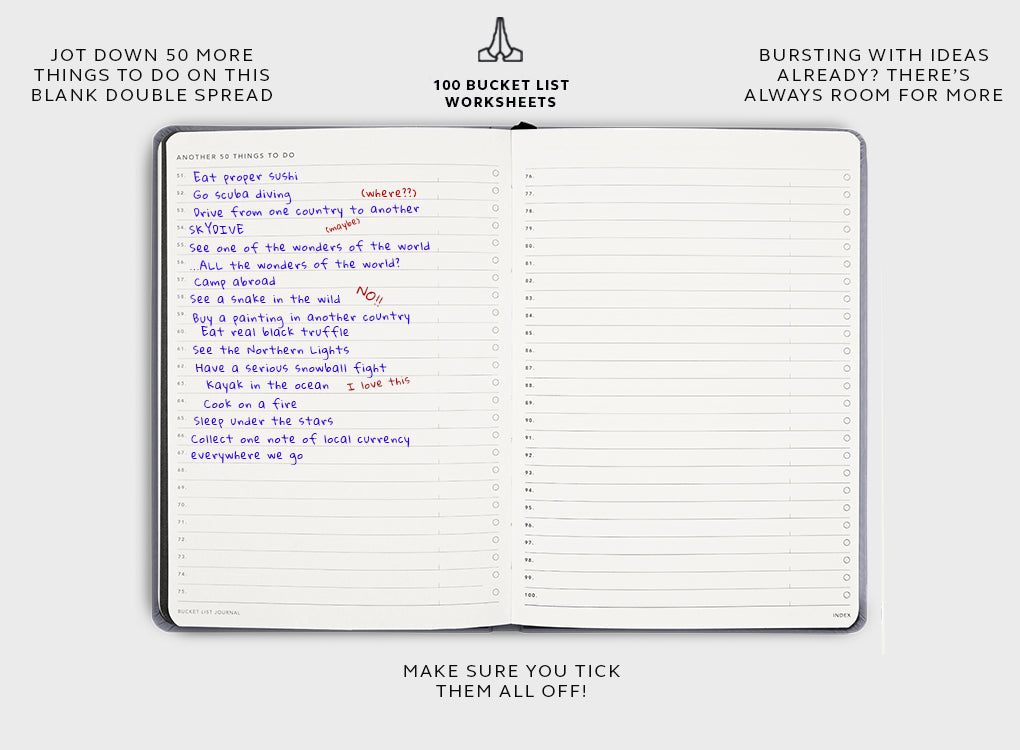 JOT DOWN 50 MORE
THINGS TO DO ON THIS
BLANK DOUBLE SPREAD
100 BUCKET LIST
WORKSHEETS
BURSTING WITH IDEAS
ALREADY? THERE'S
ALWAYS ROOM FOR MORE
ANOTHER 50 THINGS TO DO
51. Eat proper sushi
52. Go scuba diving (where??)
53. Drive from one country to another
54. SKYDIVE (maybe)
55. See one of the wonders of the world
56. ...ALL the wonders of the world?
57. Camp abroad
58. See a snake in the wild NO!!
59. Buy a painting in another country
60. Eat real black truffle
61. See the Northern Lights
62. Have a serious snowball fight
63. Kayak in the ocean I love this
64. Cook on a fire
65. Sleep under the stars
66. Collect one note of local currency
67. everywhere we go
68.
69.
70.
71.
72.
73.
74.
75.
BUCKET LIST JOURNAL
76.
77.
78.
79.
80.
81.
82.
83.
84.
85.
86.
87.
88.
89.
90.
91.
92.
93.
94.
95.
96.
97.
98.
99.
100.
INDEX
MAKE SURE YOU TICK
THEM ALL OFF!